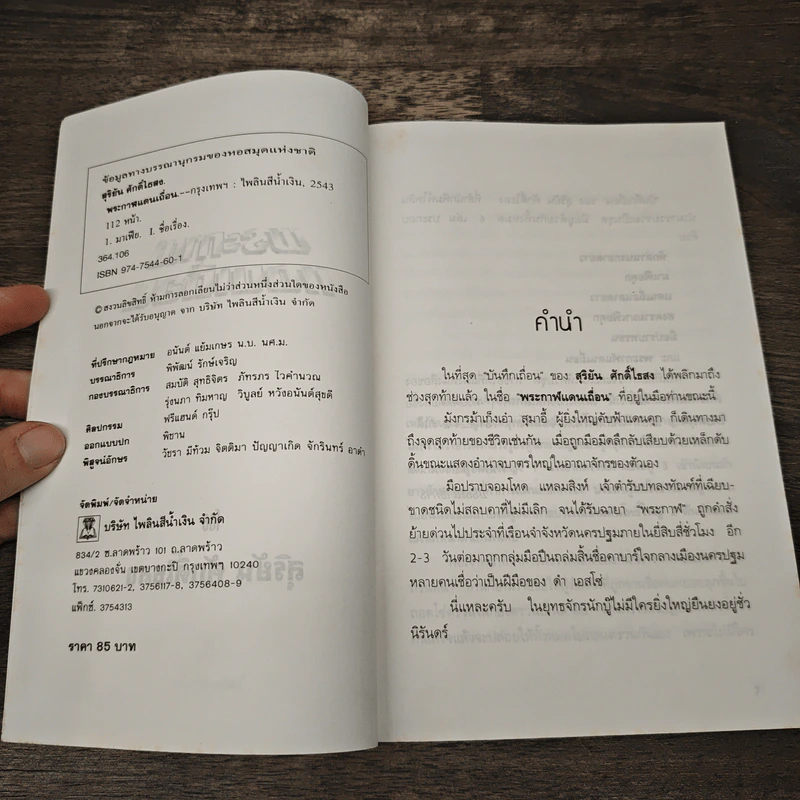 ข้อมูลทางบรรณานุกรมของหอสมุดแห่งชาติ
สุริยัน ศักดิ์ไธสง.
พระกาฬแดนเถื่อน.--กรุงเทพฯ : ไพลินสีน้ำเงิน, 2543
112 หน้า.
1. มาเฟีย. I. ชื่อเรื่อง.
364.106
ISBN 974-7544-60-1
© สงวนลิขสิทธิ์ ห้ามการลอกเลียนไม่ว่าส่วนหนึ่งส่วนใดของหนังสือ
นอกจากจะได้รับอนุญาต จาก บริษัท ไพลินสีน้ำเงิน จำกัด
ที่ปรึกษากฎหมาย อนันต์ แย้มเกษร น.บ. นศ.ม.
บรรณาธิการ พิพัฒน์ รักษ์เจริญ
กองบรรณาธิการ สมบัติ สุทธิจิตร ภัทรภร ไวคำนวณ
รุ่งนภา ทิมหาญ วิบูลย์ หวังอนันต์สุขดี
ศิลปกรรม ฟรีแฮนด์ กรุ๊ป
ออกแบบปก พิชาน
พิสูจน์อักษร วัชรา มีท้วม จิตติมา ปัญญาเกิด จักรินทร์ อาดำ
จัดพิมพ์/จัดจำหน่าย
บริษัท ไพลินสีน้ำเงิน จำกัด
834/2 ซ.ลาดพร้าว 101 ถ.ลาดพร้าว
แขวงคลองจั่น เขตบางกะปิ กรุงเทพฯ 10240
โทร. 7310621-2, 3756117-8, 3756408-9
แฟ็กซ์. 3754313
ราคา 85 บาท
คำนำ
ในที่สุด "บันทึกเถื่อน" ของ สุริยัน ศักดิ์ไธสง ได้พลิกมาถึง
ช่วงสุดท้ายแล้ว ในชื่อ "พระกาฬแดนเถื่อน" ที่อยู่ในมือท่านขณะนี้
มังกรม้าเก็งเอ๋า สุมาอี้ ผู้ยิ่งใหญ่คับฟ้าแดนคุก ก็เดินทางมา
ถึงจุดสุดท้ายของชีวิตเช่นกัน เมื่อถูกมือมืดลึกลับเสียบด้วยเหล็กดับ
ดิ้นขณะแสดงอำนาจบาตรใหญ่ในอาณาจักรของตัวเอง
มือปราบจอมโหด แหลมสิงห์ เจ้าตำรับบทลงทัณฑ์ที่เฉียบ-
ขาดชนิดไม่สลบคาที่ไม่มีเลิก จนได้รับฉายา "พระกาฬ" ถูกคำสั่ง
ย้ายด่วนไปประจำที่เรือนจำจังหวัดนครปฐมภายในยี่สิบสี่ชั่วโมง อีก
2-3 วันต่อมาถูกกลุ่มมือปืนถล่มสิ้นชื่อคาบาร์ใจกลางเมืองนครปฐม
หลายคนเชื่อว่าเป็นฝีมือของ ดำ เอสโซ่
นี่แหละครับ ในยุทธจักรนักบู๊ไม่มีใครยิ่งใหญ่ยืนยงอยู่ชั่ว
นิรันดร์